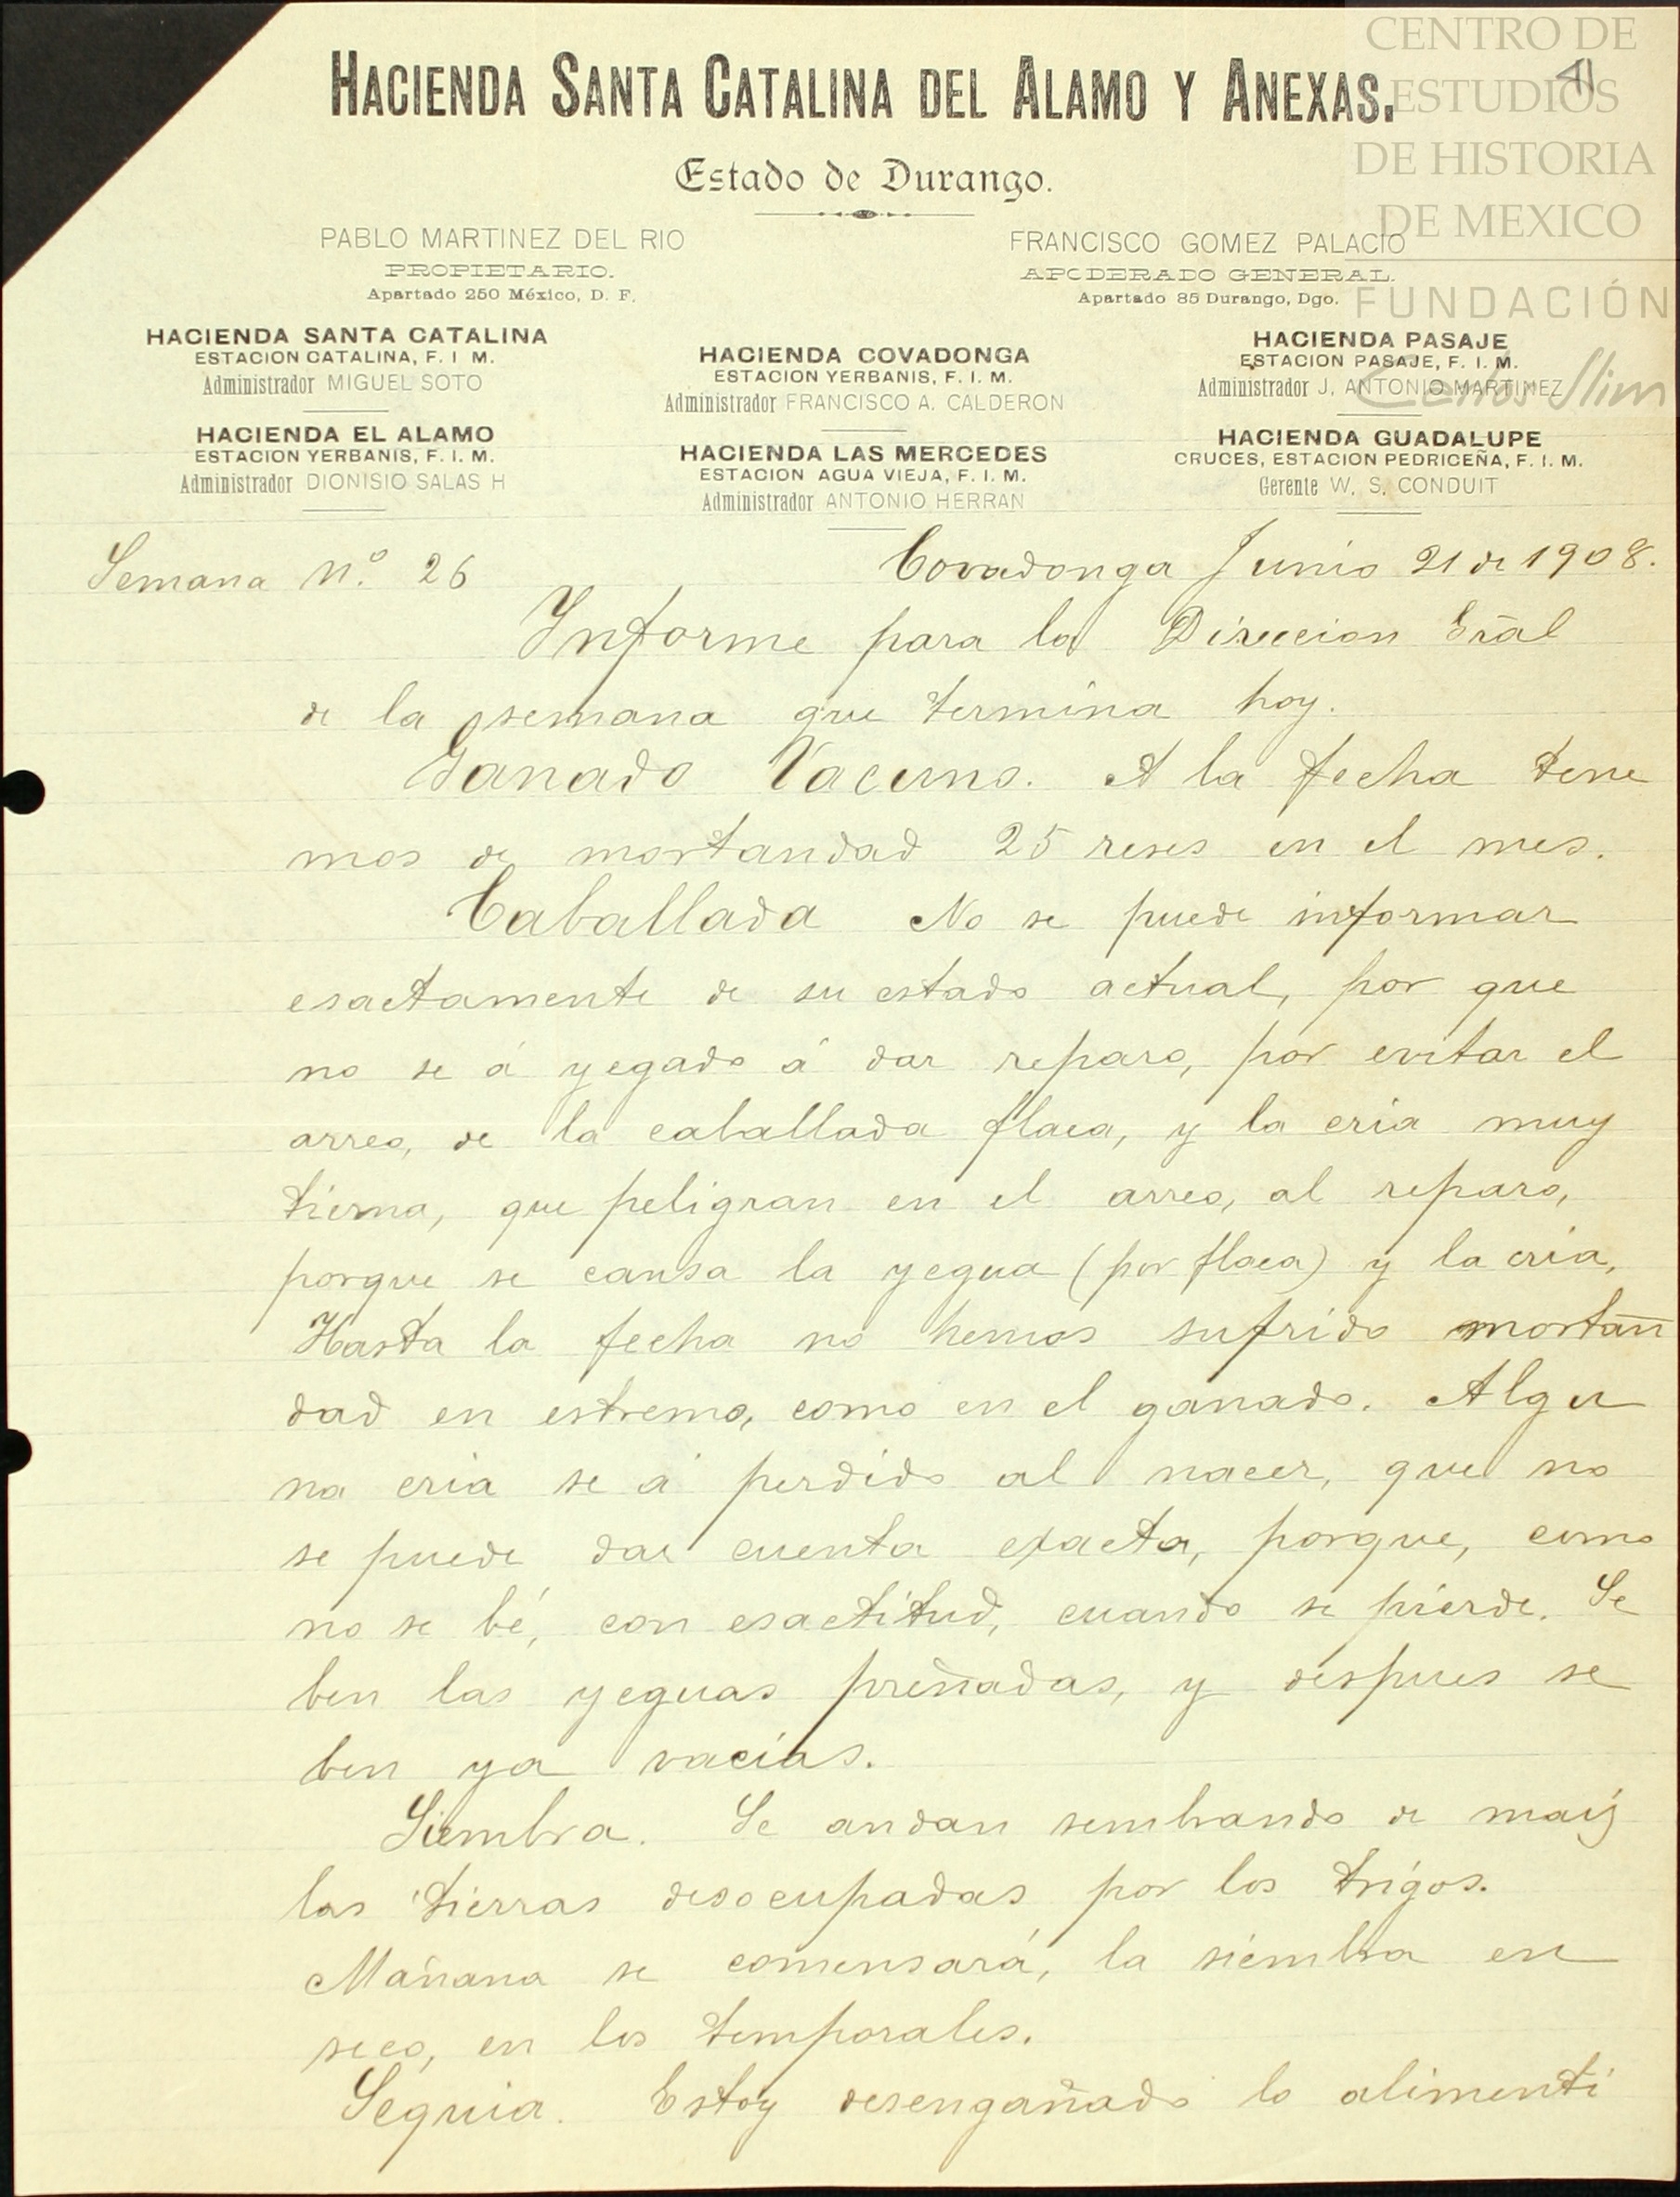 CENTRO DE
ESTUDIOS
DE HISTORIA
DE MEXICO
FUNDACIÓN
Carlos Slim
41
HACIENDA SANTA CATALINA DEL ALAMO Y ANEXAS.
Estado de Durango.
PABLO MARTINEZ DEL RIO
PROPIETARIO.
Apartado 250 México, D. F.
FRANCISCO GOMEZ PALACIO
APODERADO GENERAL.
Apartado 85 Durango, Dgo.
HACIENDA SANTA CATALINA
ESTACION CATALINA, F. I M.
Administrador MIGUEL SOTO
HACIENDA EL ALAMO
ESTACION YERBANIS, F. I. M.
Administrador DIONISIO SALAS H
HACIENDA COVADONGA
ESTACION YERBANIS, F. I. M.
Administrador FRANCISCO A. CALDERON
HACIENDA LAS MERCEDES
ESTACION AGUA VIEJA, F. I. M.
Administrador ANTONIO HERRAN
HACIENDA PASAJE
ESTACION PASAJE, F. I. M.
Administrador J. ANTONIO MARTINEZ
HACIENDA GUADALUPE
CRUCES, ESTACION PEDRICEÑA, F. I. M.
Gerente W. S. CONDUIT
Semana n.º 26
Covadonga Junio 21 de 1908.
Informe para la Direccion Gral
de la semana que termina hoy.
Ganado Vacuno. A la fecha tene
mos de mortandad 25 reses en el mes.
Caballada No se puede informar
esactamente de su estado actual, por que
no se á yegado á dar reparo, por evitar el
arreo, de la caballada flaca, y la cria muy
tierna, que peligran en el arreo, al reparo,
porque se cansa la yegua (por flaca) y la cria,
Hasta la fecha no hemos sufrido mortan
dad en estremo, como en el ganado. Algu
na cria se á perdido al nacer, que no
se puede dar cuenta exacta, porque, como
no se bé, con esactitud, cuando se pierde. Se
ben las yeguas preñadas, y despues se
ben ya vacías.
Siembra. Se andan sembrando de maiz
las tierras desocupadas por los trigos.
Mañana se comensará, la siembra en
seco, en los temporales.
Sequia. Estoy desengañado lo alimenti